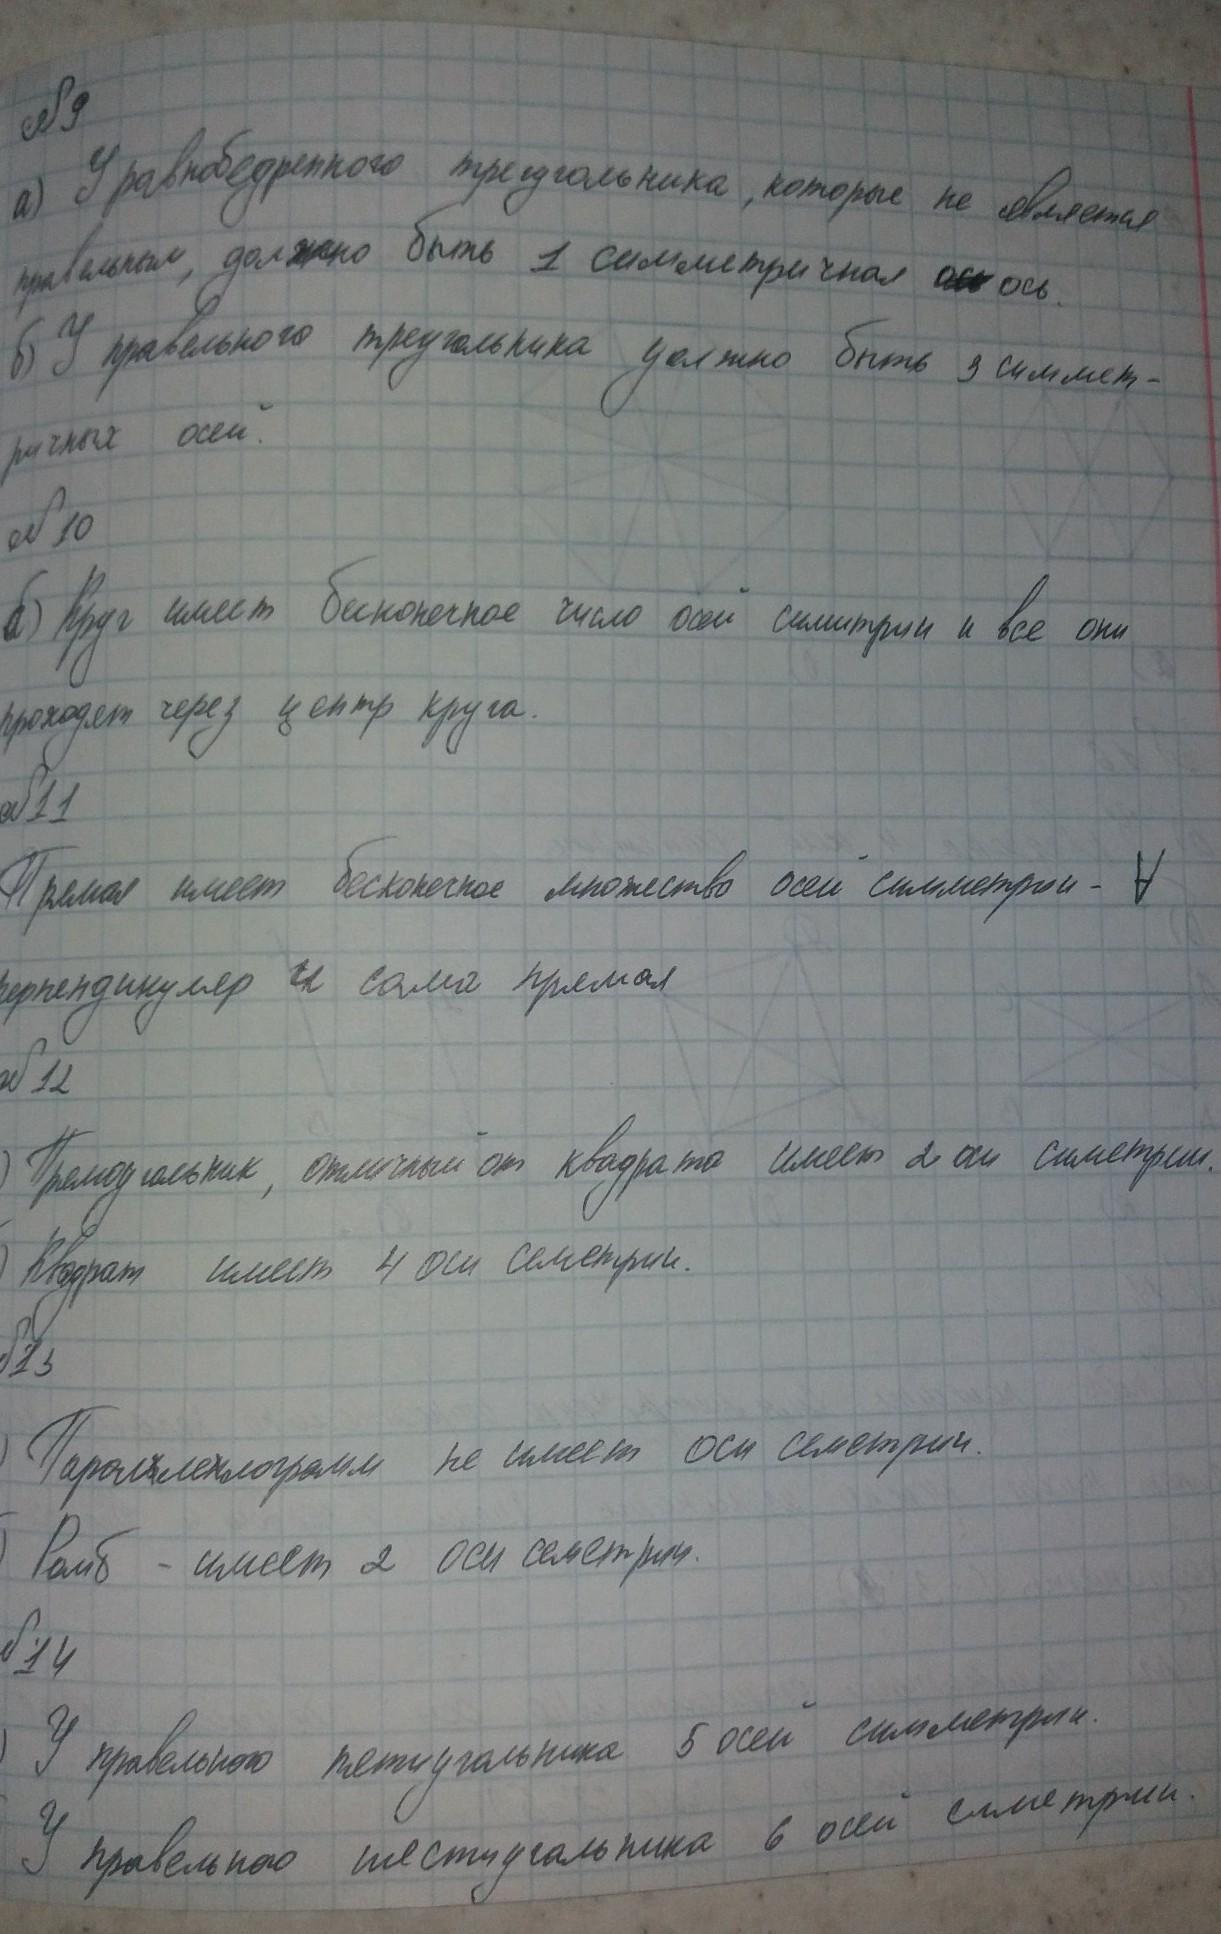 №9
а) У равнобедренного треугольника, которые не является
правельным, должно быть 1 симметричная ось.
б) У правельного треугольника должно быть 3 симмет-
ричных осей.
№10
б) Круг имеет бесконечное число осей симитрии и все они
проходят через центр круга.
№11
Прямая имеет бесконечное множество осей симметрии - ∀
перпендикуляр и сама прямая
№12
) Прямоугольник, отличный от квадрата имеет 2 оси симетрии.
) Квадрат имеет 4 оси семетрии.
№13
) Параллелограмм не имеет оси семетрии.
) Ромб - имеет 2 оси семетрии.
№14
) У правельного пятиугальника 5 осей симметрии.
У правельного шестиугальника 6 осей симетрии.